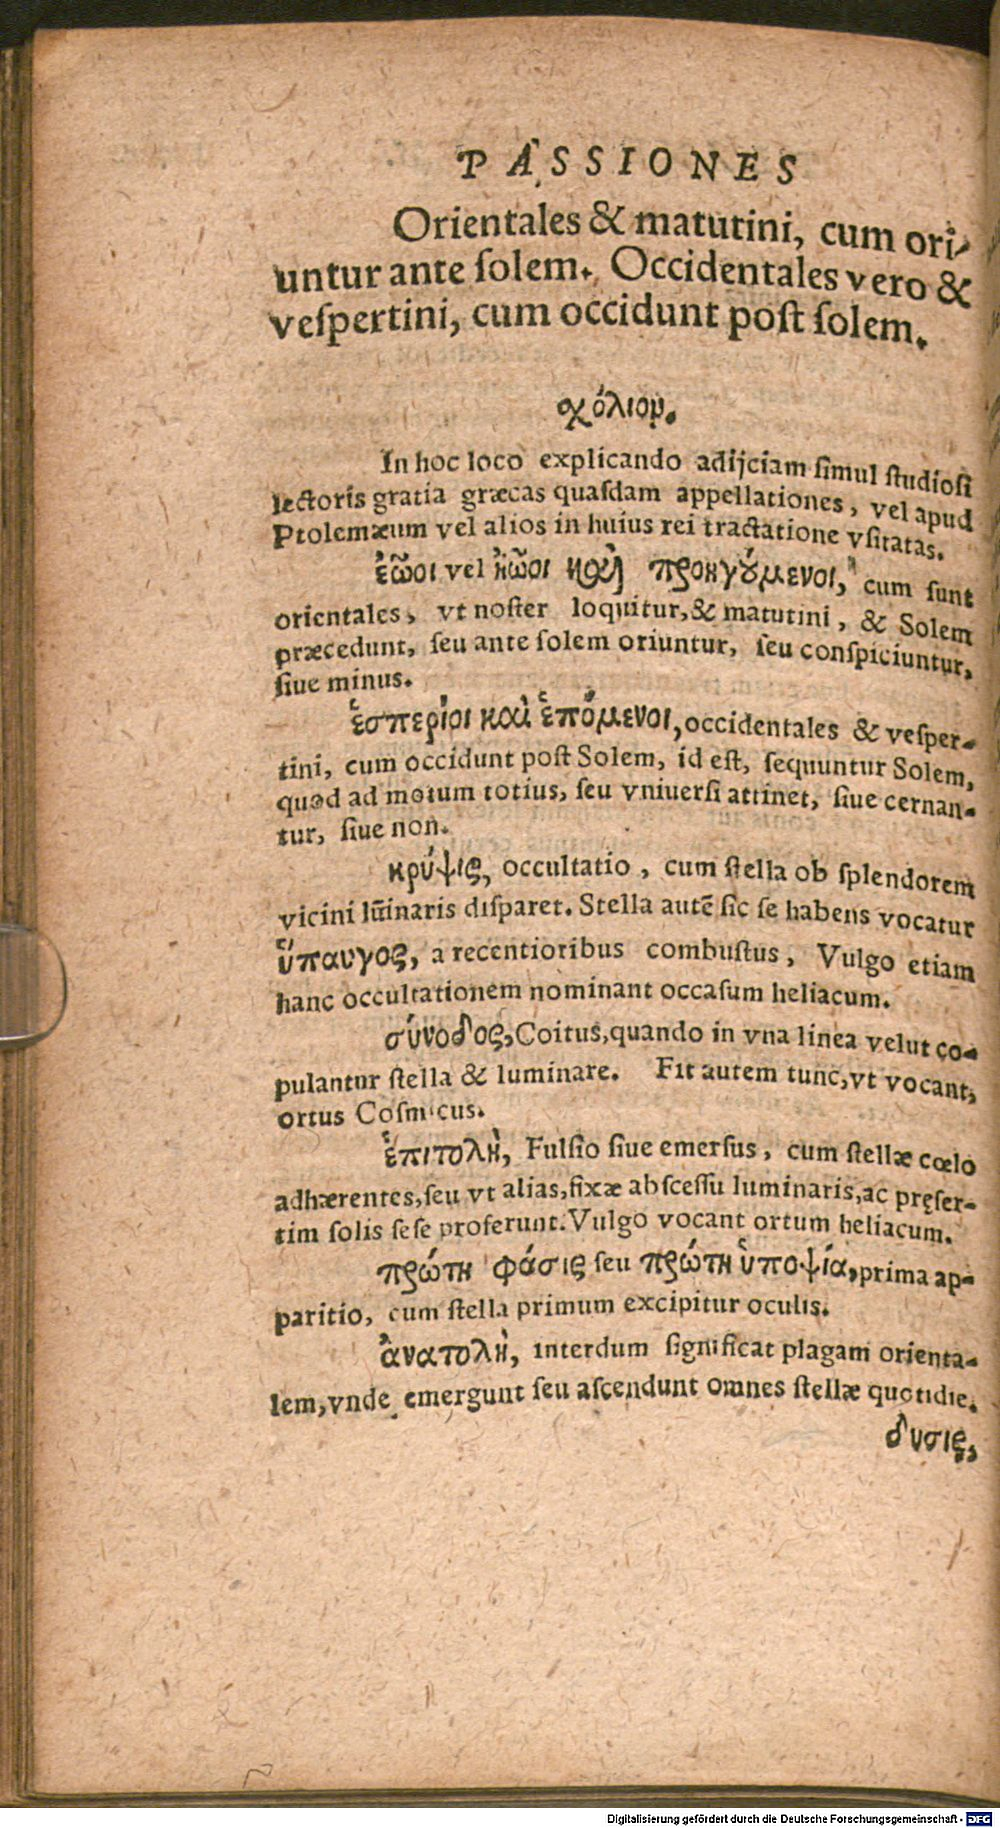 PASSIONES
Orientales & matutini, cum ori-
untur ante ſolem. Occidentales vero &
veſpertini, cum occidunt poſt ſolem.
σχόλιον.
In hoc loco explicando adijciam ſimul ſtudioſi
lectoris gratia græcas quaſdam appellationes, vel apud
Ptolemæum vel alios in huius rei tractatione vſitatas.
ἑῶοι vel ἠῶοι καὶ προηγούμενοι, cum ſunt
orientales, vt noſter loquitur, & matutini, & Solem
præcedunt, ſeu ante ſolem oriuntur, ſeu conſpiciuntur,
ſiue minus.
ἑσπερίοι καὶ ἑπόμενοι, occidentales & veſper-
tini, cum occidunt poſt Solem, id eſt, ſequuntur Solem,
quod ad motum totius, ſeu vniuerſi attinet, ſiue cernan-
tur, ſiue non.
κρύψις, occultatio, cum ſtella ob ſplendorem
vicini lũinaris diſparet. Stella autẽ ſic ſe habens vocatur
ὕπαυγος, a recentioribus combuſtus, Vulgo etiam
hanc occultationem nominant occaſum heliacum.
σύνοδος, Coitus, quando in vna linea velut co-
pulantur ſtella & luminare. Fit autem tunc, vt vocant,
ortus Coſmicus.
ἐπιτολὴ, Fulſio ſiue emerſus, cum ſtellæ cœlo
adhærentes, ſeu vt alias, fixæ abſceſſu luminaris, ac pręſer-
tim ſolis ſeſe proferunt. Vulgo vocant ortum heliacum.
πρώτη φάσις ſeu πρώτη ὑποψία, prima ap-
paritio, cum ſtella primum excipitur oculis.
ἀνατολὴ, interdum ſignificat plagam orienta-
lem, vnde emergunt ſeu aſcendunt omnes ſtellæ quotidie.
δυσις,
Digitalisierung gefördert durch die Deutsche Forschungsgemeinschaft - DFG